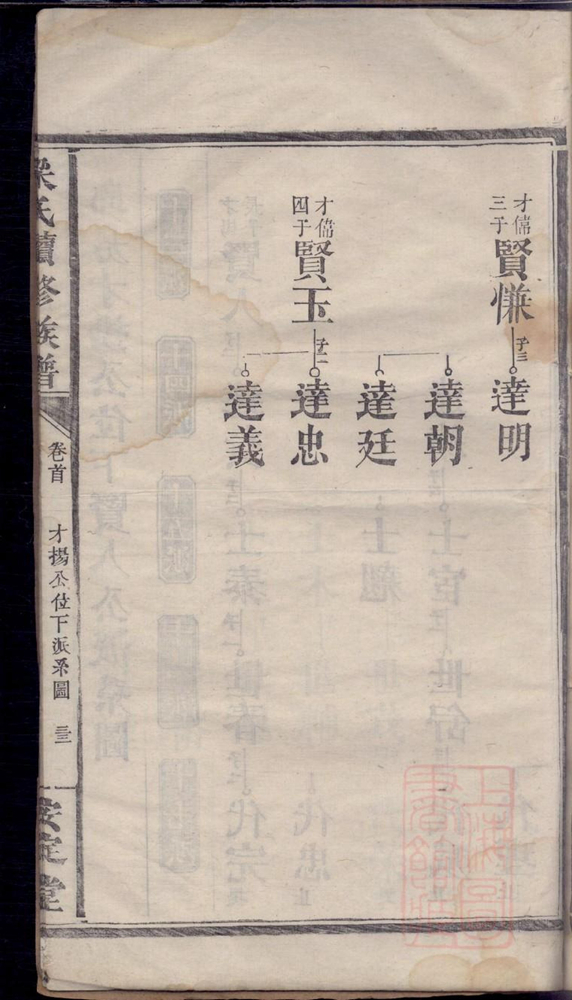 才儒三子
賢慊
子三
達明
達朝
達廷
才儒四子
賢玉
子二
達忠
達義
氏續修族譜
卷首
才揚公位下派系圖
三三
安定堂